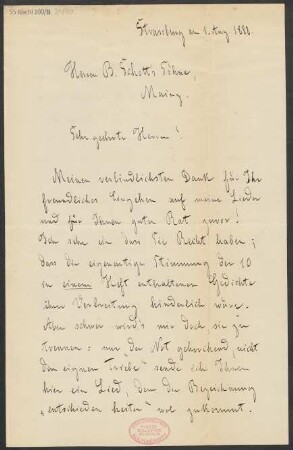 Strassburg am 1. Aug. 1888.
Herrn B. Schott's Söhne,
Mainz.
Sehr geehrte Herren!
Meinen verbindlichsten Dank für Ihr
freundliches Eingehen auf meine Lieder
und für Ihren guten Rat zuvor!
Ich sehe ein dass Sie Recht haben;
dass die eigenartige Stimmung der 10
in einem Heft enthaltenen Gedichte
ihrer Verbreitung hinderlich wäre.
Aber schwer wird's mir doch sie zu
trennen: nur der Not gehorchend, nicht
dem eignen Triebe sende ich Ihnen
hier ein Lied, dem die Bezeichnung
„entschieden heiter" wol zukommt.